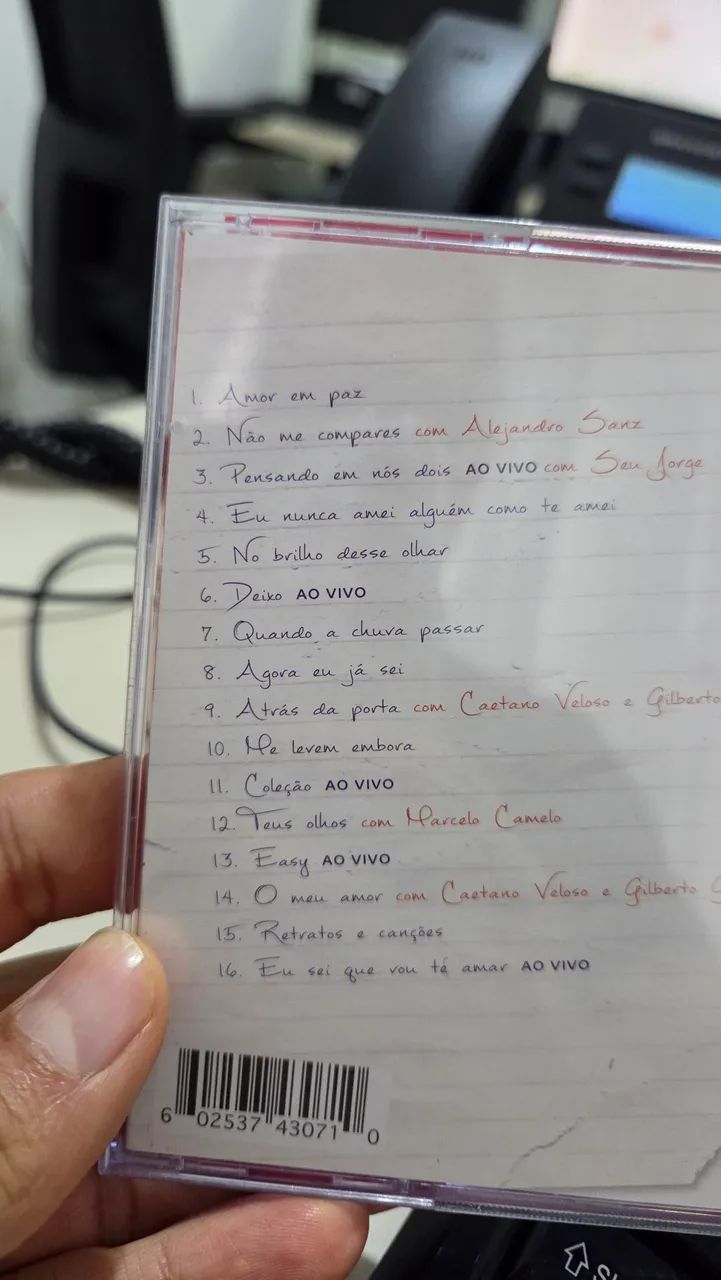 1. Amor em paz
2. Não me compares com Alejandro Sanz
3. Pensando em nós dois AO VIVO com Seu Jorge
4. Eu nunca amei alguém como te amei
5. No brilho desse olhar
6. Deixo AO VIVO
7. Quando a chuva passar
8. Agora eu já sei
9. Atrás da porta com Caetano Veloso e Gilberto
10. Me levem embora
11. Coleção AO VIVO
12. Teus olhos com Marcelo Camelo
13. Easy AO VIVO
14. O meu amor com Caetano Veloso e Gilberto G
15. Retratos e canções
16. Eu sei que vou te amar AO VIVO
6 02537 43071 0